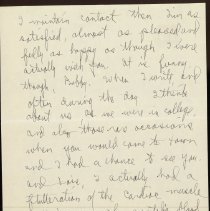 I maintain contact then I'm as
satisfied, almost as pleased and
fully as happy as though I were
actually with you. It is funny
though, Bobby. When I write and
often during the day I think
about us, as we were in college
and also those rare occasions
when you would come to town
and I had a chance to see you.
and have, I actually had a
fibrilleration of the cardiac muscle